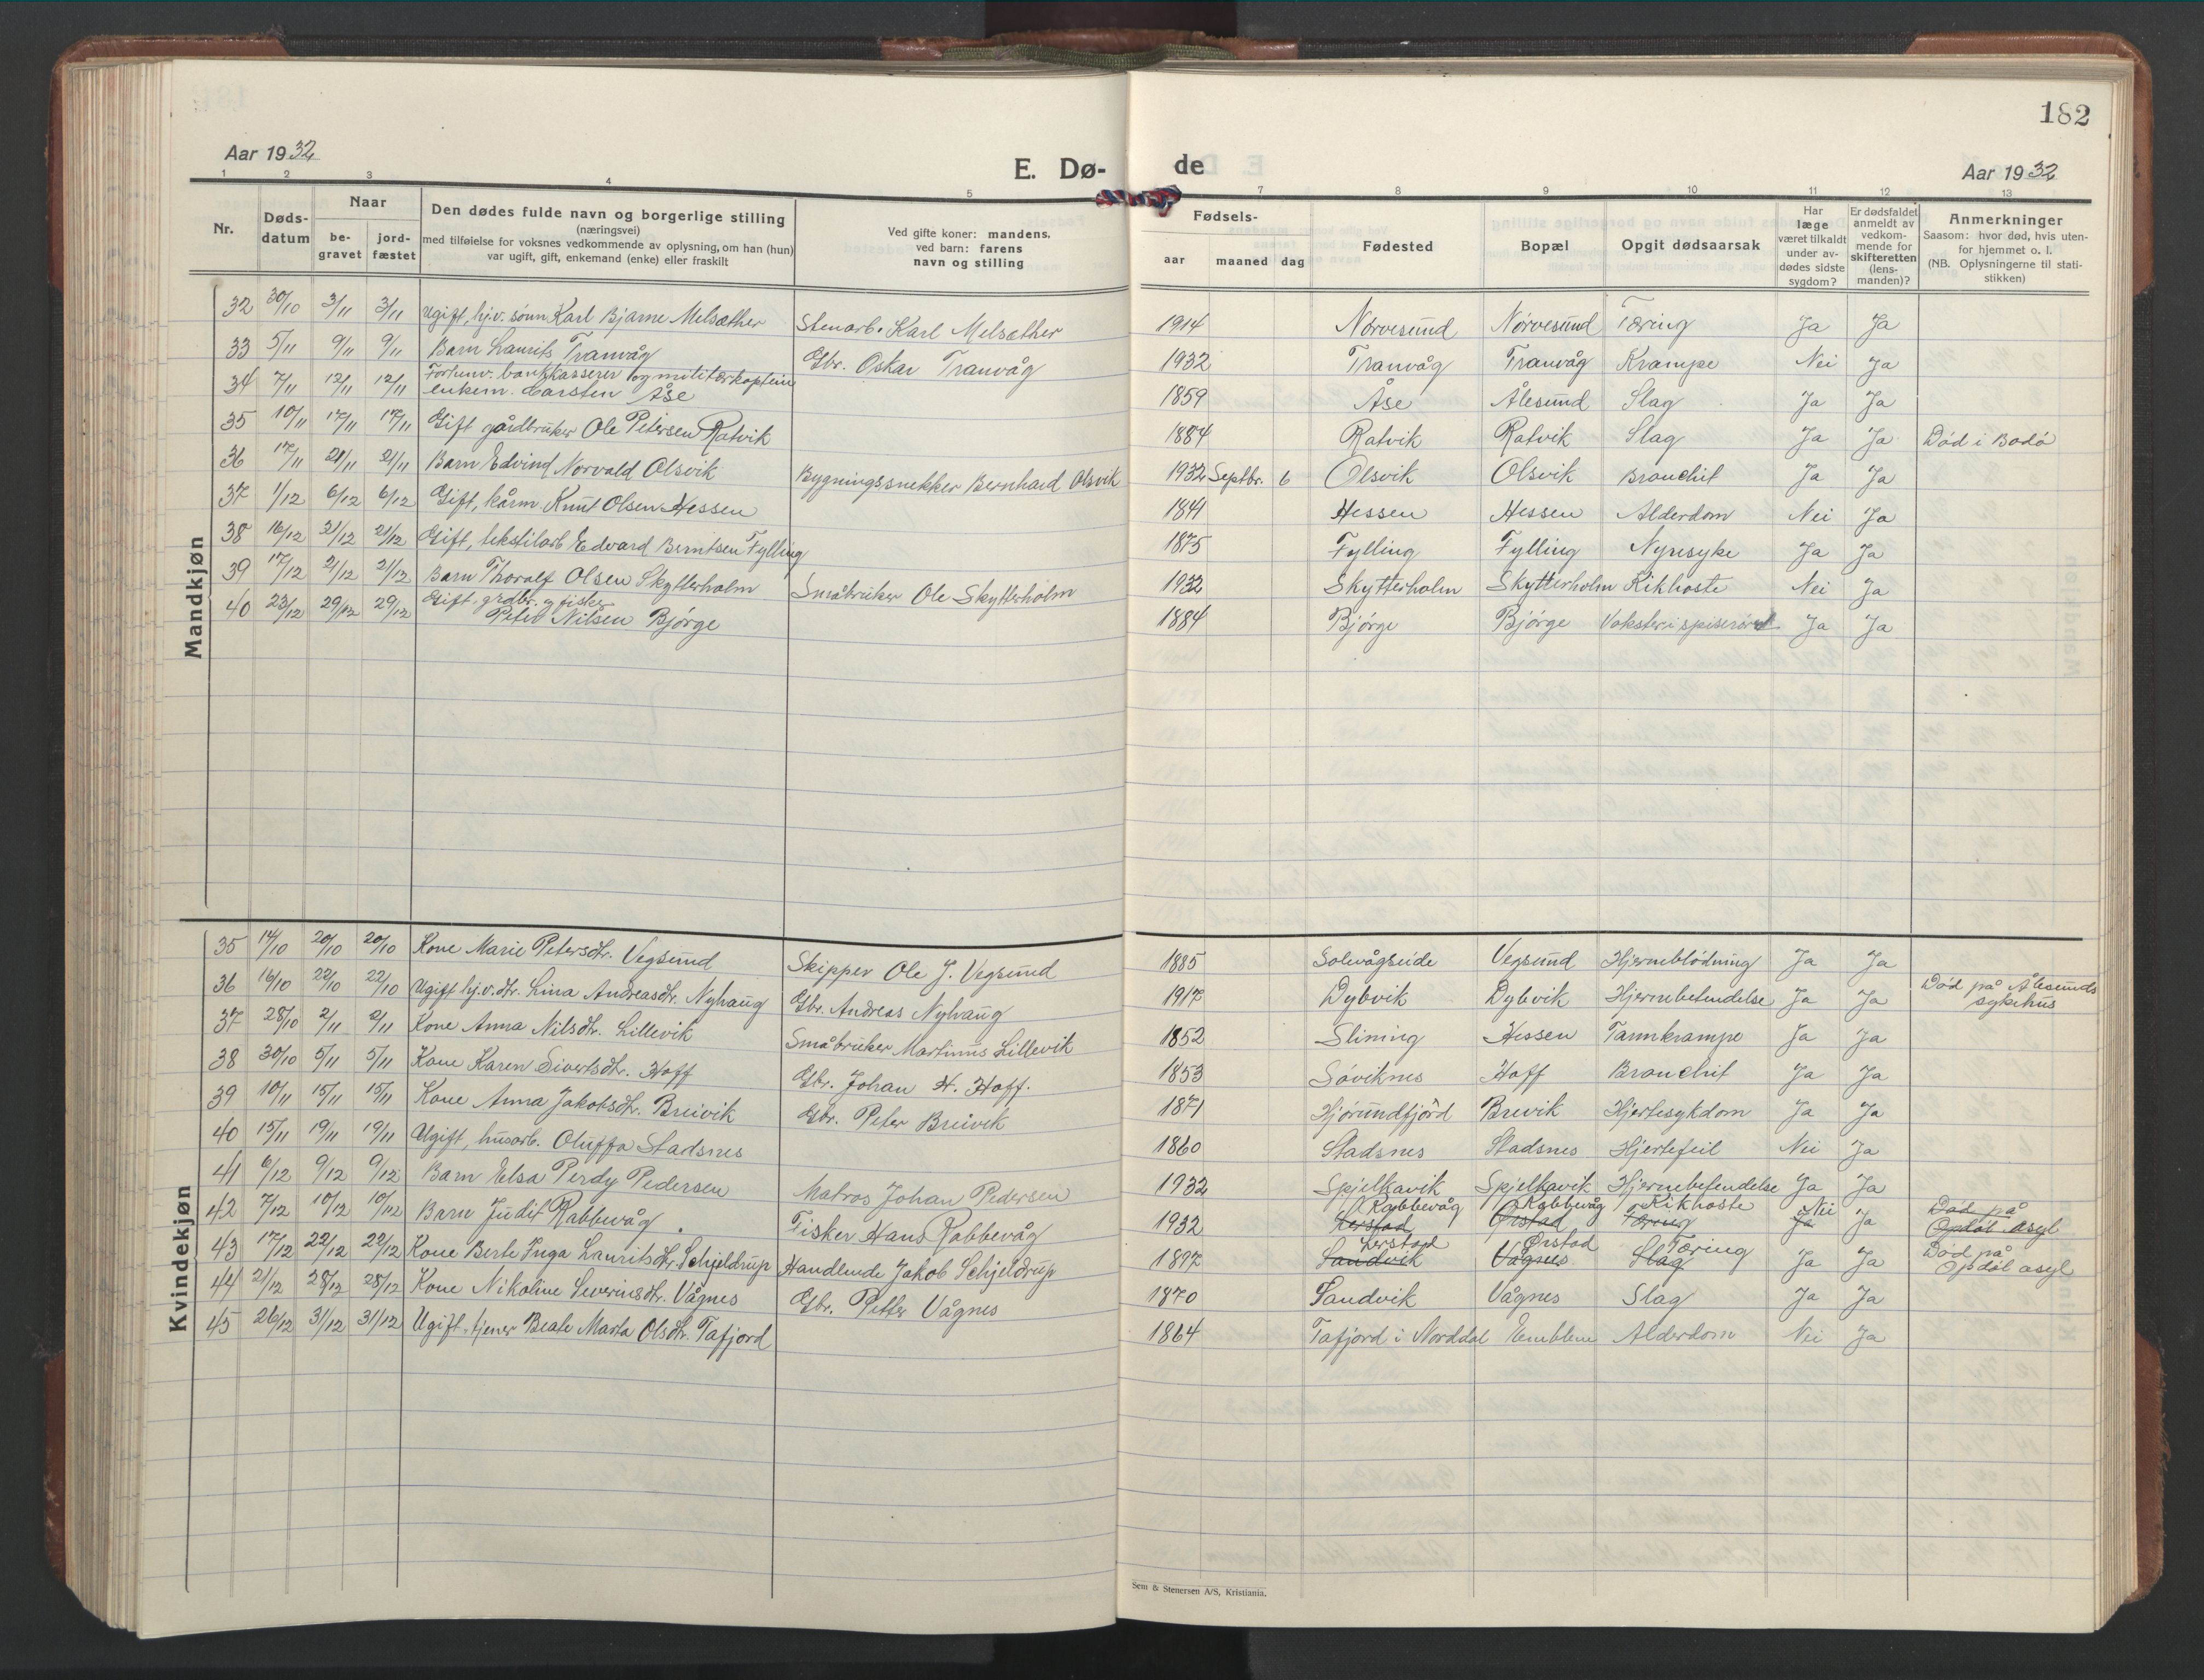 182
Aar 1932
E. Dø-
de
Aar 1932
1 2 3 4 5 7 8 9 10 11 12 13
Nr.
Døds-
datum
Naar
be-
gravet
jord-
fæstet
Den dødes fulde navn og borgerlige stilling
(næringsvei)
med tilføielse for voksnes vedkommende av oplysning, om han (hun)
var ugift, gift, enkemand (enke) eller fraskilt
Ved gifte koner: mandens,
ved barn: farens
navn og stilling
Fødsels-
aar maaned dag
Fødested
Bopæl
Opgit dødsaarsak
Har
læge
været tilkaldt
under av-
dødes sidste
sygdom?
Er dødsfaldet
anmeldt av
vedkom-
mende for
skifteretten
(lens-
manden)?
Anmerkninger
Saasom: hvor død, hvis uten-
for hjemmet o. l.
(NB. Oplysningerne til stati-
stikken)
Mandkjøn
32 30/10 3/11 3/11 Ugift, hj.v. sønn Karl Bjarne Melsæther Stenarb. Karl Melsæther 1914 Nørvesund Nørvesund Tæring Ja Ja
33 5/11 9/11 9/11 Barn Laurits Tranvåg Gbr. Oskar Tranvåg 1932 Tranvåg Tranvåg Krampe Nei Ja
34 7/11 12/11 12/11 Forhenv. bankkasserer og militærkaptein
enkem. Carsten Åse 1859 Åse Ålesund Slag Ja Ja
35 10/11 17/11 17/11 Gift gårdbruker Ole Petersen Ratvik 1884 Ratvik Ratvik Slag Ja Ja Død i Bodø
36 17/11 21/11 21/11 Barn Edvind Norvald Olsvik Bygningssnekker Bernhard Olsvik 1932 Septbr. 6 Olsvik Olsvik Bronchit Ja Ja
37 1/12 6/12 6/12 Gift, kårm. Knut Olsen Hessen 1841 Hessen Hessen Alderdom Nei Ja
38 16/12 21/12 21/12 Gift, tekstilarb Edvard Berntsen Fylling 1875 Fylling Fylling Nyresyke Ja Ja
39 17/12 21/12 21/12 Barn Thoralf Olsen Skytterholm Småbruker Ole Skytterholm 1932 Skytterholm Skytterholm Kikhoste Nei Ja
40 23/12 29/12 29/12 Gift. grdbr. og fisker
Peter Nilsen Bjørge 1884 Bjørge Bjørge Vekster i spiserøret Ja Ja
Kvindekjøn
35 14/10 20/10 20/10 Kone Marie Petersdtr. Vegsund Skipper Ole J. Vegsund 1885 Solevågseide Vegsund Hjerneblødning Ja Ja
36 16/10 22/10 22/10 Ugift hj.v. dtr. Lina Andreasdtr. Nyhaug Gbr. Andreas Nyhaug 1917 Dybvik Dybvik Hjernebetendelse Ja Ja Død på Ålesunds
sykehus
37 28/10 2/11 2/11 Kone Anna Nilsdtr. Lillevik Småbruker Martinus Lillevik 1852 Slining Hessen Tarmkrampe Ja Ja
38 30/10 5/11 5/11 Kone Karen Sivertsdtr. Hoff Gbr. Johan H. Hoff. 1853 Søviknes Hoff Bronchit Ja Ja
39 10/11 15/11 15/11 Kone Anna Jakobsdtr. Breivik Gbr. Peter Breivik 1871 Hjørundfjord Brevik Hjertesykdom Ja Ja
40 15/11 19/11 19/11 Ugift, husarb. Oluffa Stadsnes 1860 Stadsnes Stadsnes Hjertefeil Nei Ja
41 6/12 9/12 9/12 Barn Elsa Perdy Pedersen Matros Johan Pedersen 1932 Spjelkavik Spjelkavik Hjernebetendelse Ja Ja
Rabbevåg Rabbevåg Kikhoste Nei
42 7/12 10/12 10/12 Barn Judit Rabbevåg Fisker Hans Rabbevåg 1932 Lerstad Ørstad Tæring Ja Ja Død på
Opdøl asyl
Lerstad Ørstad Tæring
43 17/12 22/12 22/12 Kone Berte Inga Lauritsdtr. Schjeldrup Handlende Jakob Schjeldrup 1897 Sandvik Vågnes Slag Ja Ja Død på
Opdøl asyl
44 21/12 28/12 28/12 Kone Nikoline Severinsdtr. Vågnes Gbr. Petter Vågnes 1870 Sandvik Vågnes Slag Ja Ja
45 26/12 31/12 31/12 Ugift, tjener Beate Marta Olsdtr. Tafjord 1864 Tafjord i Norddal Emblem Alderdom Nei Ja
Sem & Stenersen A/S, Kristiania.